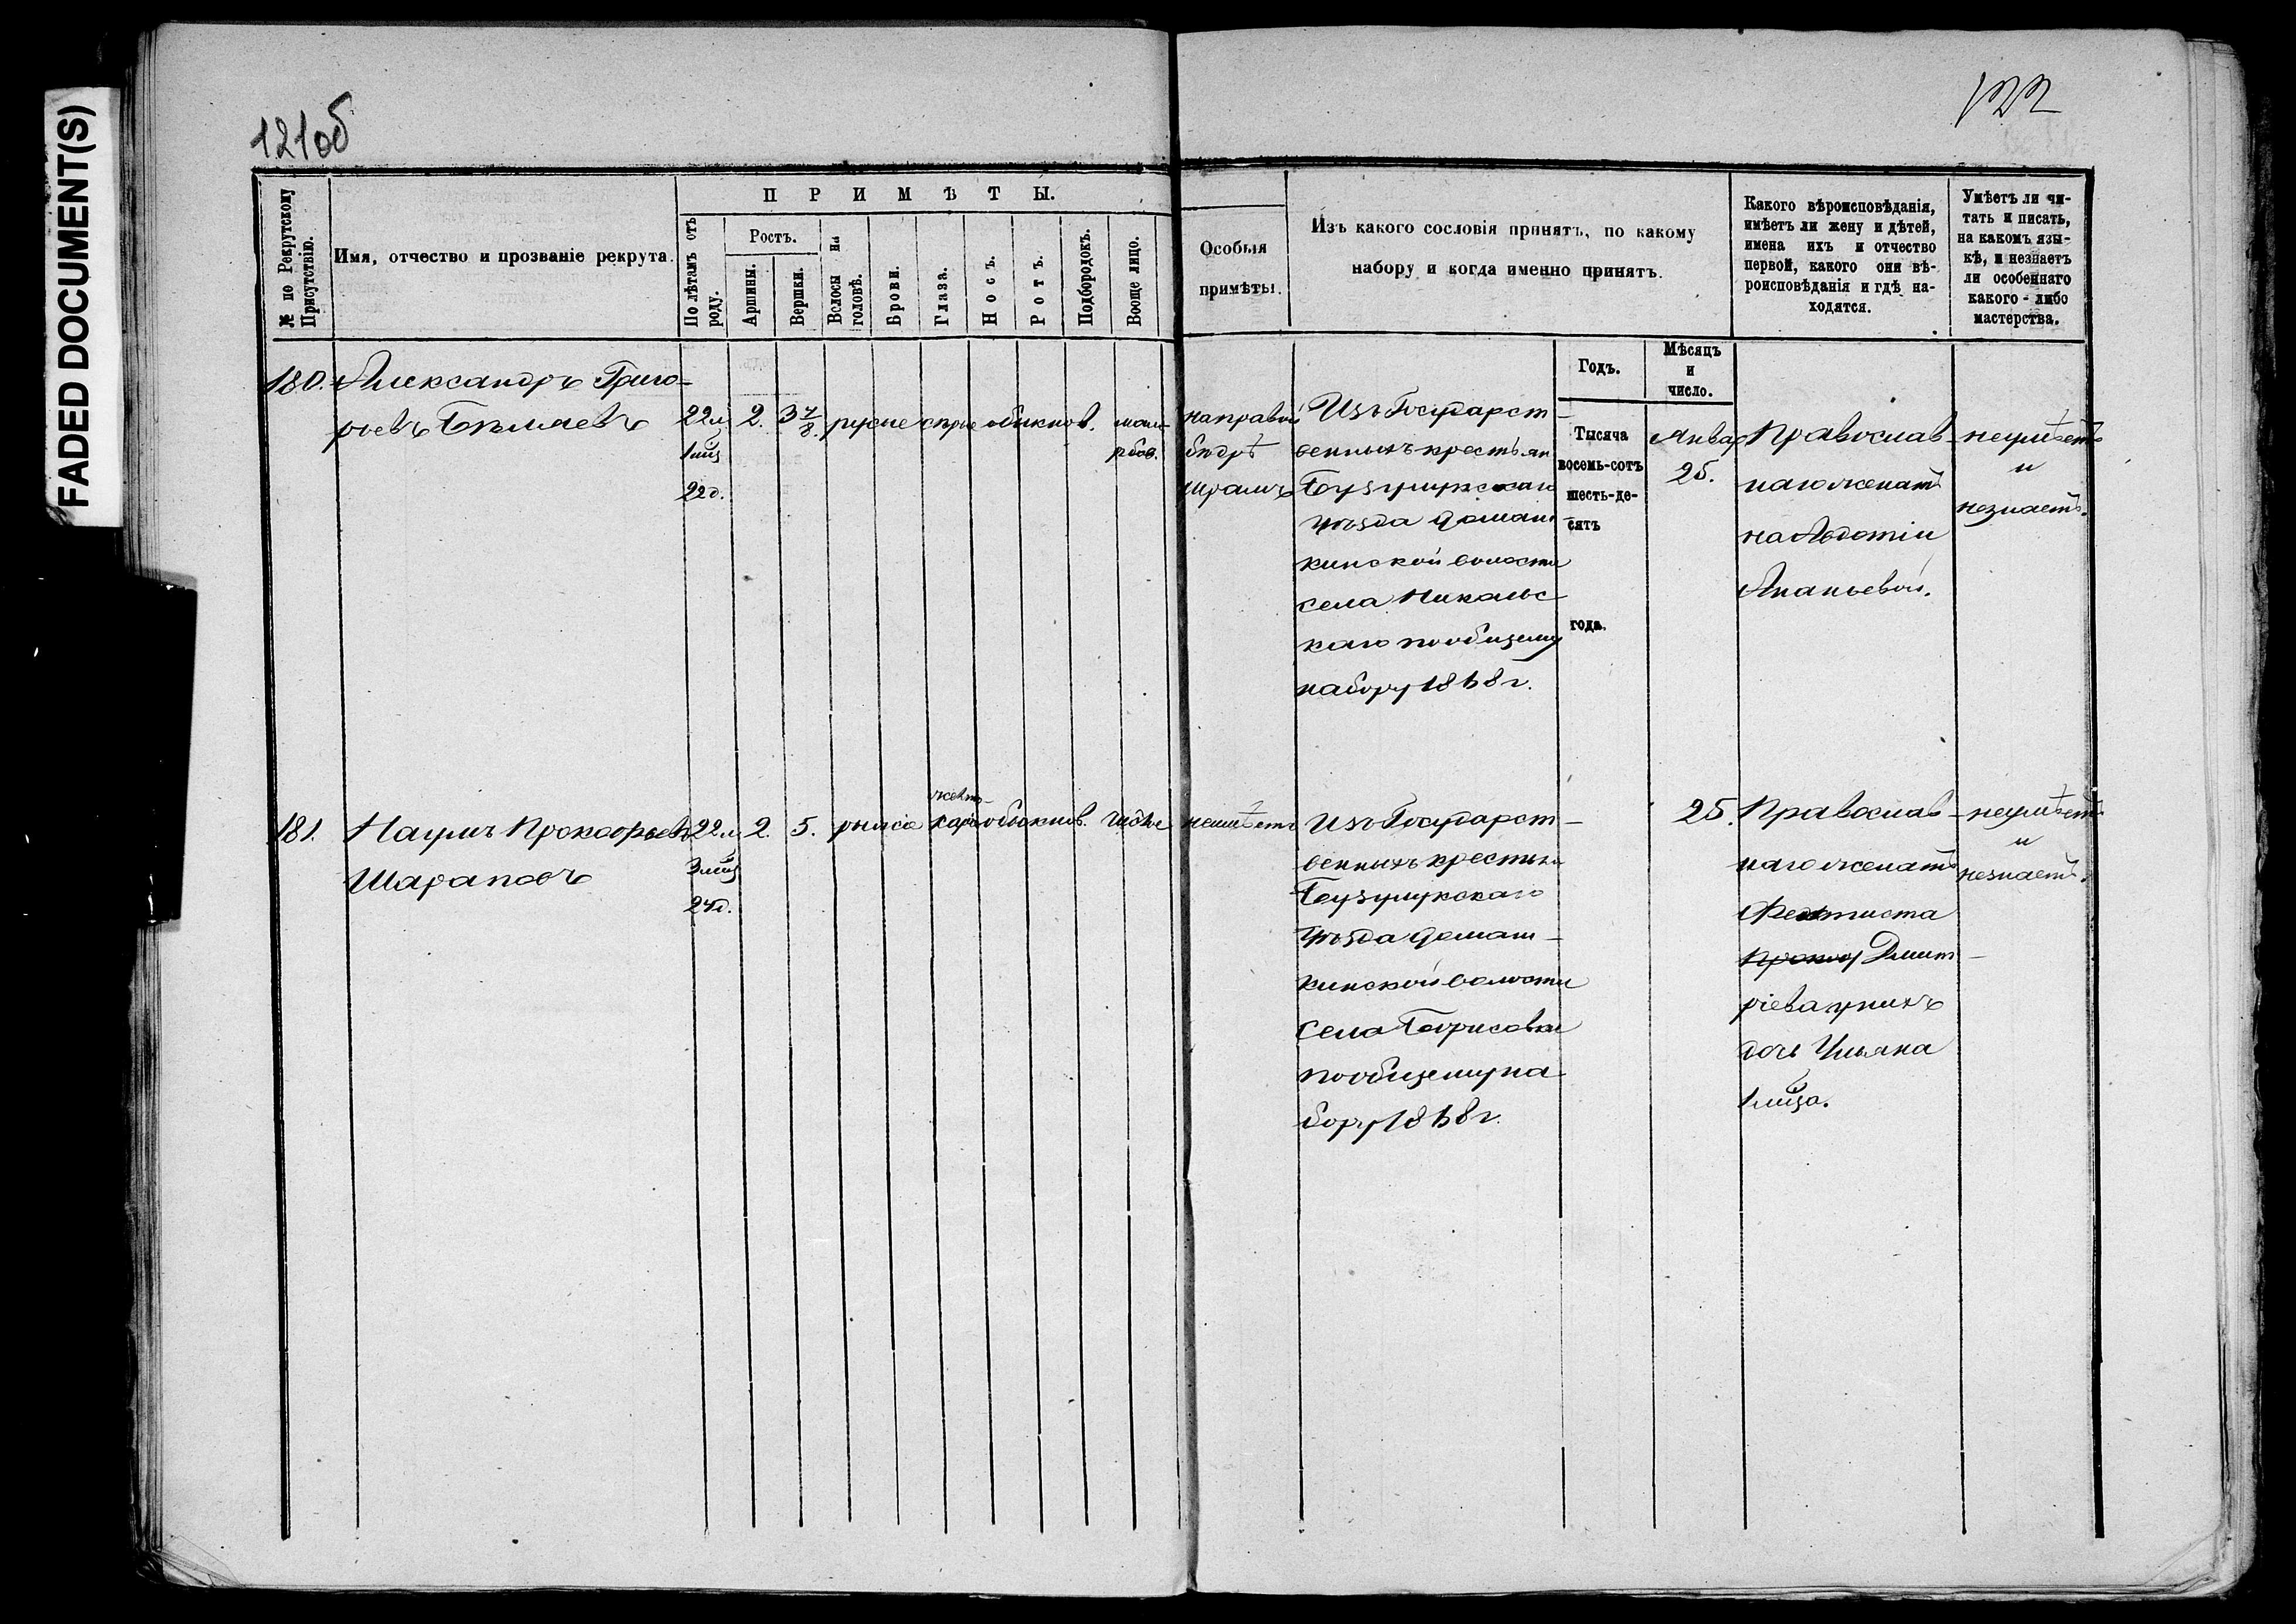 FADED DOCUMENT(S)
121об
122
№ по Рекрутскому Присутствію.
Имя, отчество и прозваніе рекрута.
ПРИМѢТЫ.
По лѣтамъ отъ роду.
Ростъ.
Аршины.
Вершки.
Волосы на головѣ.
Брови.
Глаза.
Носъ.
Ротъ.
Подбородокъ.
Вооще лицо.
Особыя
примѣты.
Изъ какого сословія принятъ, по какому
набору и когда именно принятъ.
Какого вѣроисповѣданія,
имѣетъ ли жену и дѣтей,
имена ихъ и отчество
первой, какого они вѣ-
роисповѣданія и гдѣ на-
ходятся.
Умѣетъ ли чи-
тать и писать,
на какомъ язы-
кѣ, и незнаетъ
ли особеннаго
какого-либо
мастерства.
Годъ.
Мѣсяцъ
и
число.
Тысяча
восемь-сотъ
шесть-де-
сятъ
года.
180. Александръ Григо-
рьевъ Бѣляевъ
22 л.
1 мѣц
22 д.
2. 3 7/8. русые сѣрые обыкнов.
рбов.
на правой
бедрѣ
шрамъ
Изъ Государст-
венныхъ крестьян
Бузулукскаго
уѣзда Домаш-
кинской волости
села Никольс
каго по общему
набору 1868 г.
Январ
25.
Православ-
наго женатъ
на Авдотіи
Ананьевой.
неумѣетъ
и
незнаетъ.
181. Наумъ Прокофьевъ
Шараповъ
22 л.
3 мѣц
24 д.
2. 5. рыжіе
желто-
каріе обыкнов. чистое
неимѣетъ
Изъ Государст-
венныхъ крестьян
Бузулукскаго
Уѣзда Домаш-
кинской волости
Села Борисовки
по общему на
бору 1868 г.
25.
Православ-
наго женатъ
Феоктиста
Дмит-
ріева у нихъ
дочь Ульяна
1 мѣца.
неумѣетъ
и
незнаетъ.